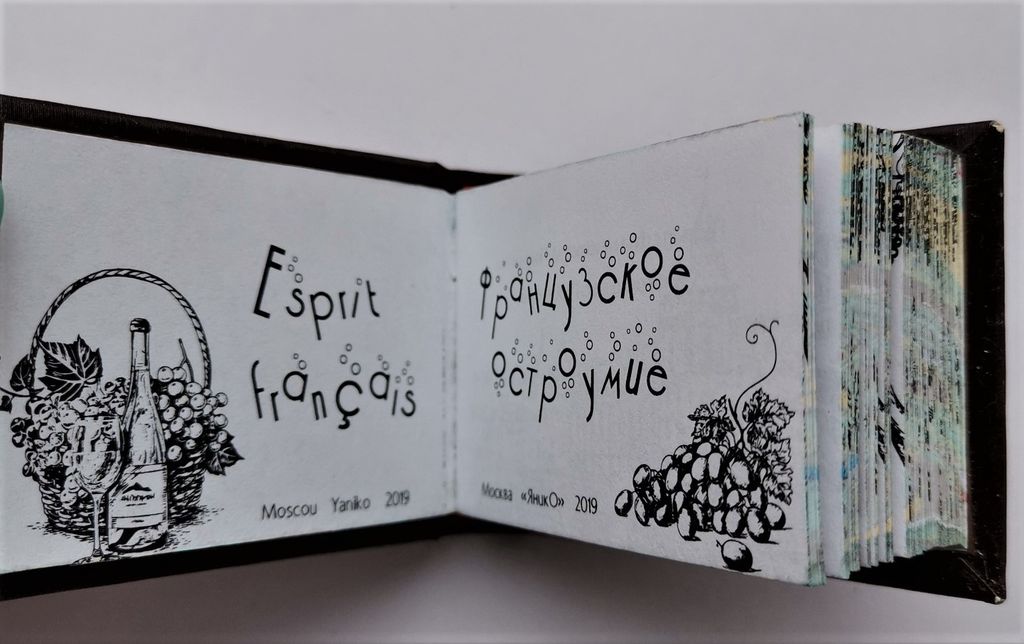 Esprit
français
Moscou Yaniko 2019
Французское
остроумие
Москва «ЯникО» 2019